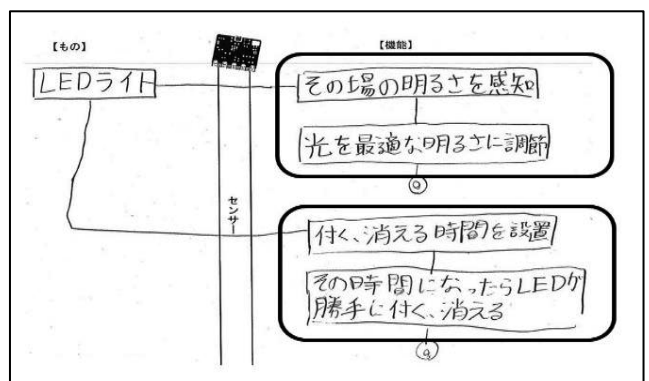 【もの】
【機能】
LEDライト
その場の明るさを感知
光を最適な明るさに調節
ⓐ
センサー
付く、消える時間を設置
その時間になったらLEDが
勝手に付く、消える
ⓐ